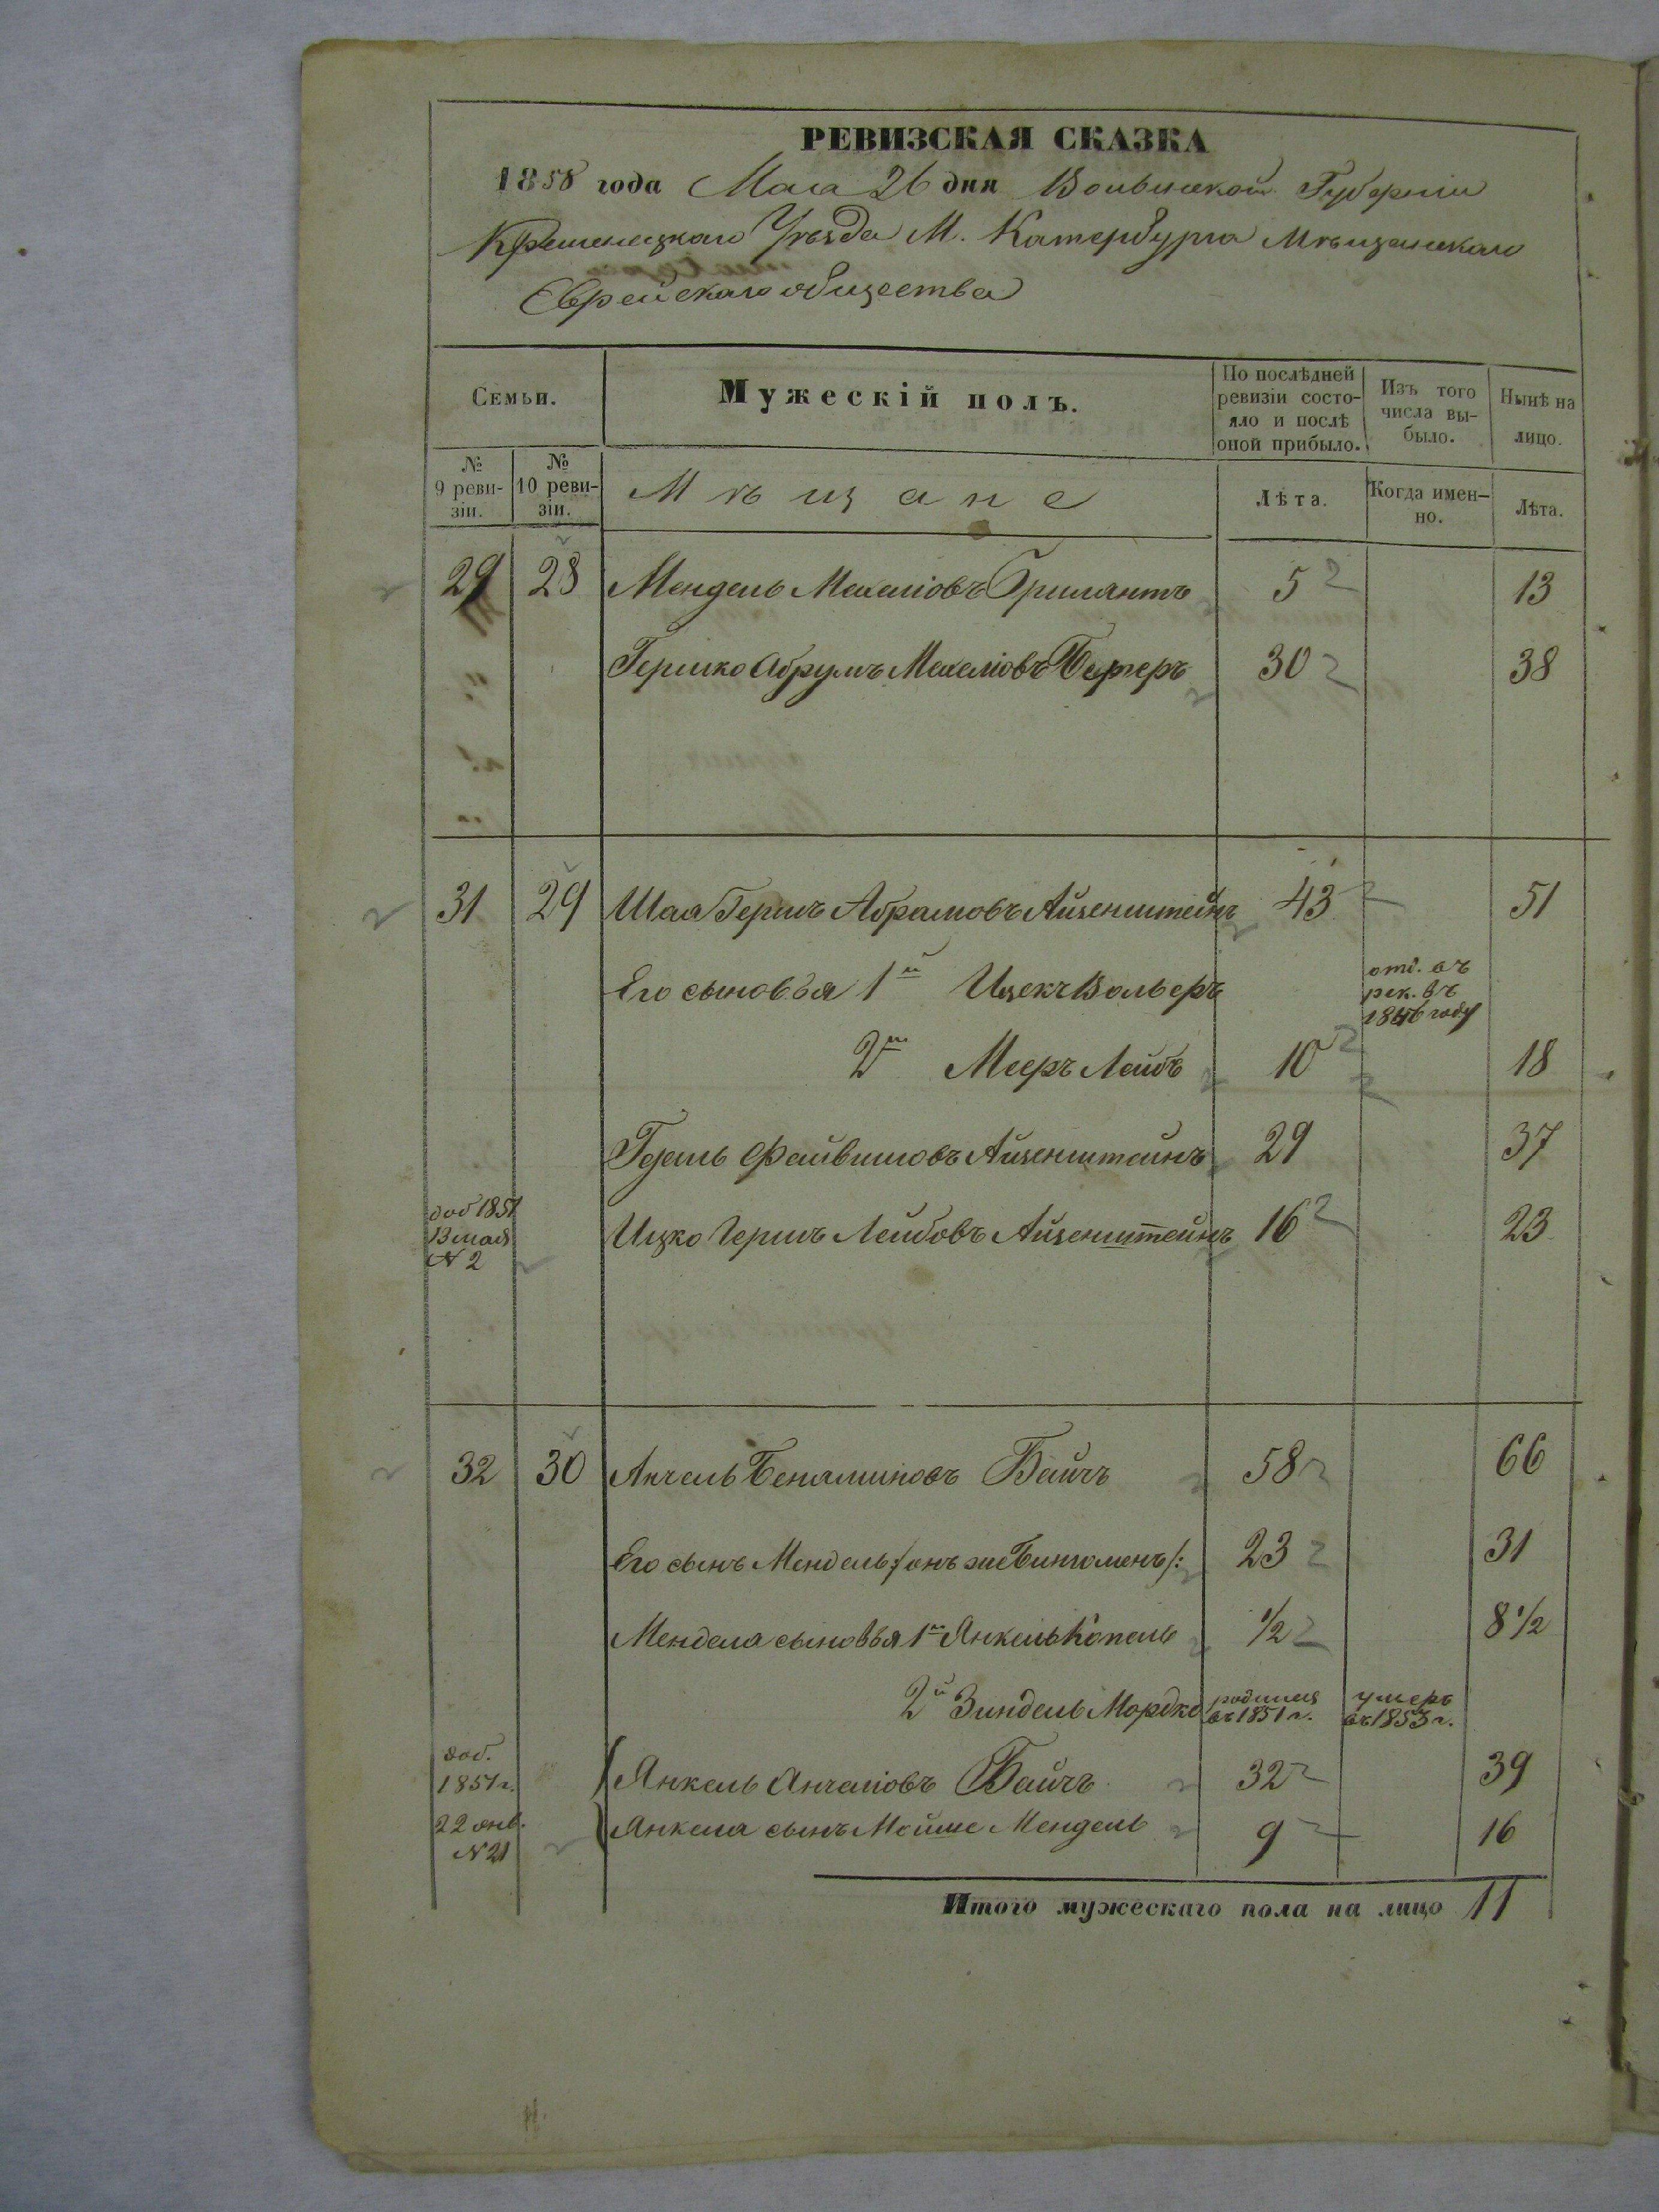 РЕВИЗСКАЯ СКАЗКА
1858 года Мая 26 дня Волынской Губерніи
Кременецкаго Уѣзда М. Катербурга Мѣщанскаго
Еврейскаго общества
Семьи. Мужескій полъ. По послѣдней ревизіи состояло и послѣ оной прибыло. Изъ того числа выбыло. Нынѣ на лицо.
№ 9 ревизіи. № 10 ревизіи. Мѣщане Лѣта. Когда именно. Лѣта.
29 28 Мендель Мехеліовъ Брилянтъ 5 13
Гершко Абрумъ Мехеліовъ 30 38
31 29 Шая Гершъ Абрамовъ Айзенштейнъ 43 51
Его сыновья 1й Ицекъ Вольеръ отд. въ рек. въ 1846 году
2й Мееръ Лейбъ 10 18
Гдаль Файвишовъ Айзенштейнъ 29 37
доб 1851 13 мая N 2 Ицко Гершъ Лейбовъ Айзенштейнъ 16 23
32 30 Анчель Беняминовъ Байчъ 58 66
Его сынъ Мендель /: онъ же :/ 23 31
Менделя сыновья 1й Янкель Копель 1/2 8 1/2
2й Зиндель Мордко родился въ 1851 г. умеръ въ 1853 г.
доб. 1851 г. Янкель Анчеліовъ Байчъ 32 39
22 янв. N 21 Янкеля сынъ Мойше Мендель 9 16
Итого мужескаго пола на лицо 11